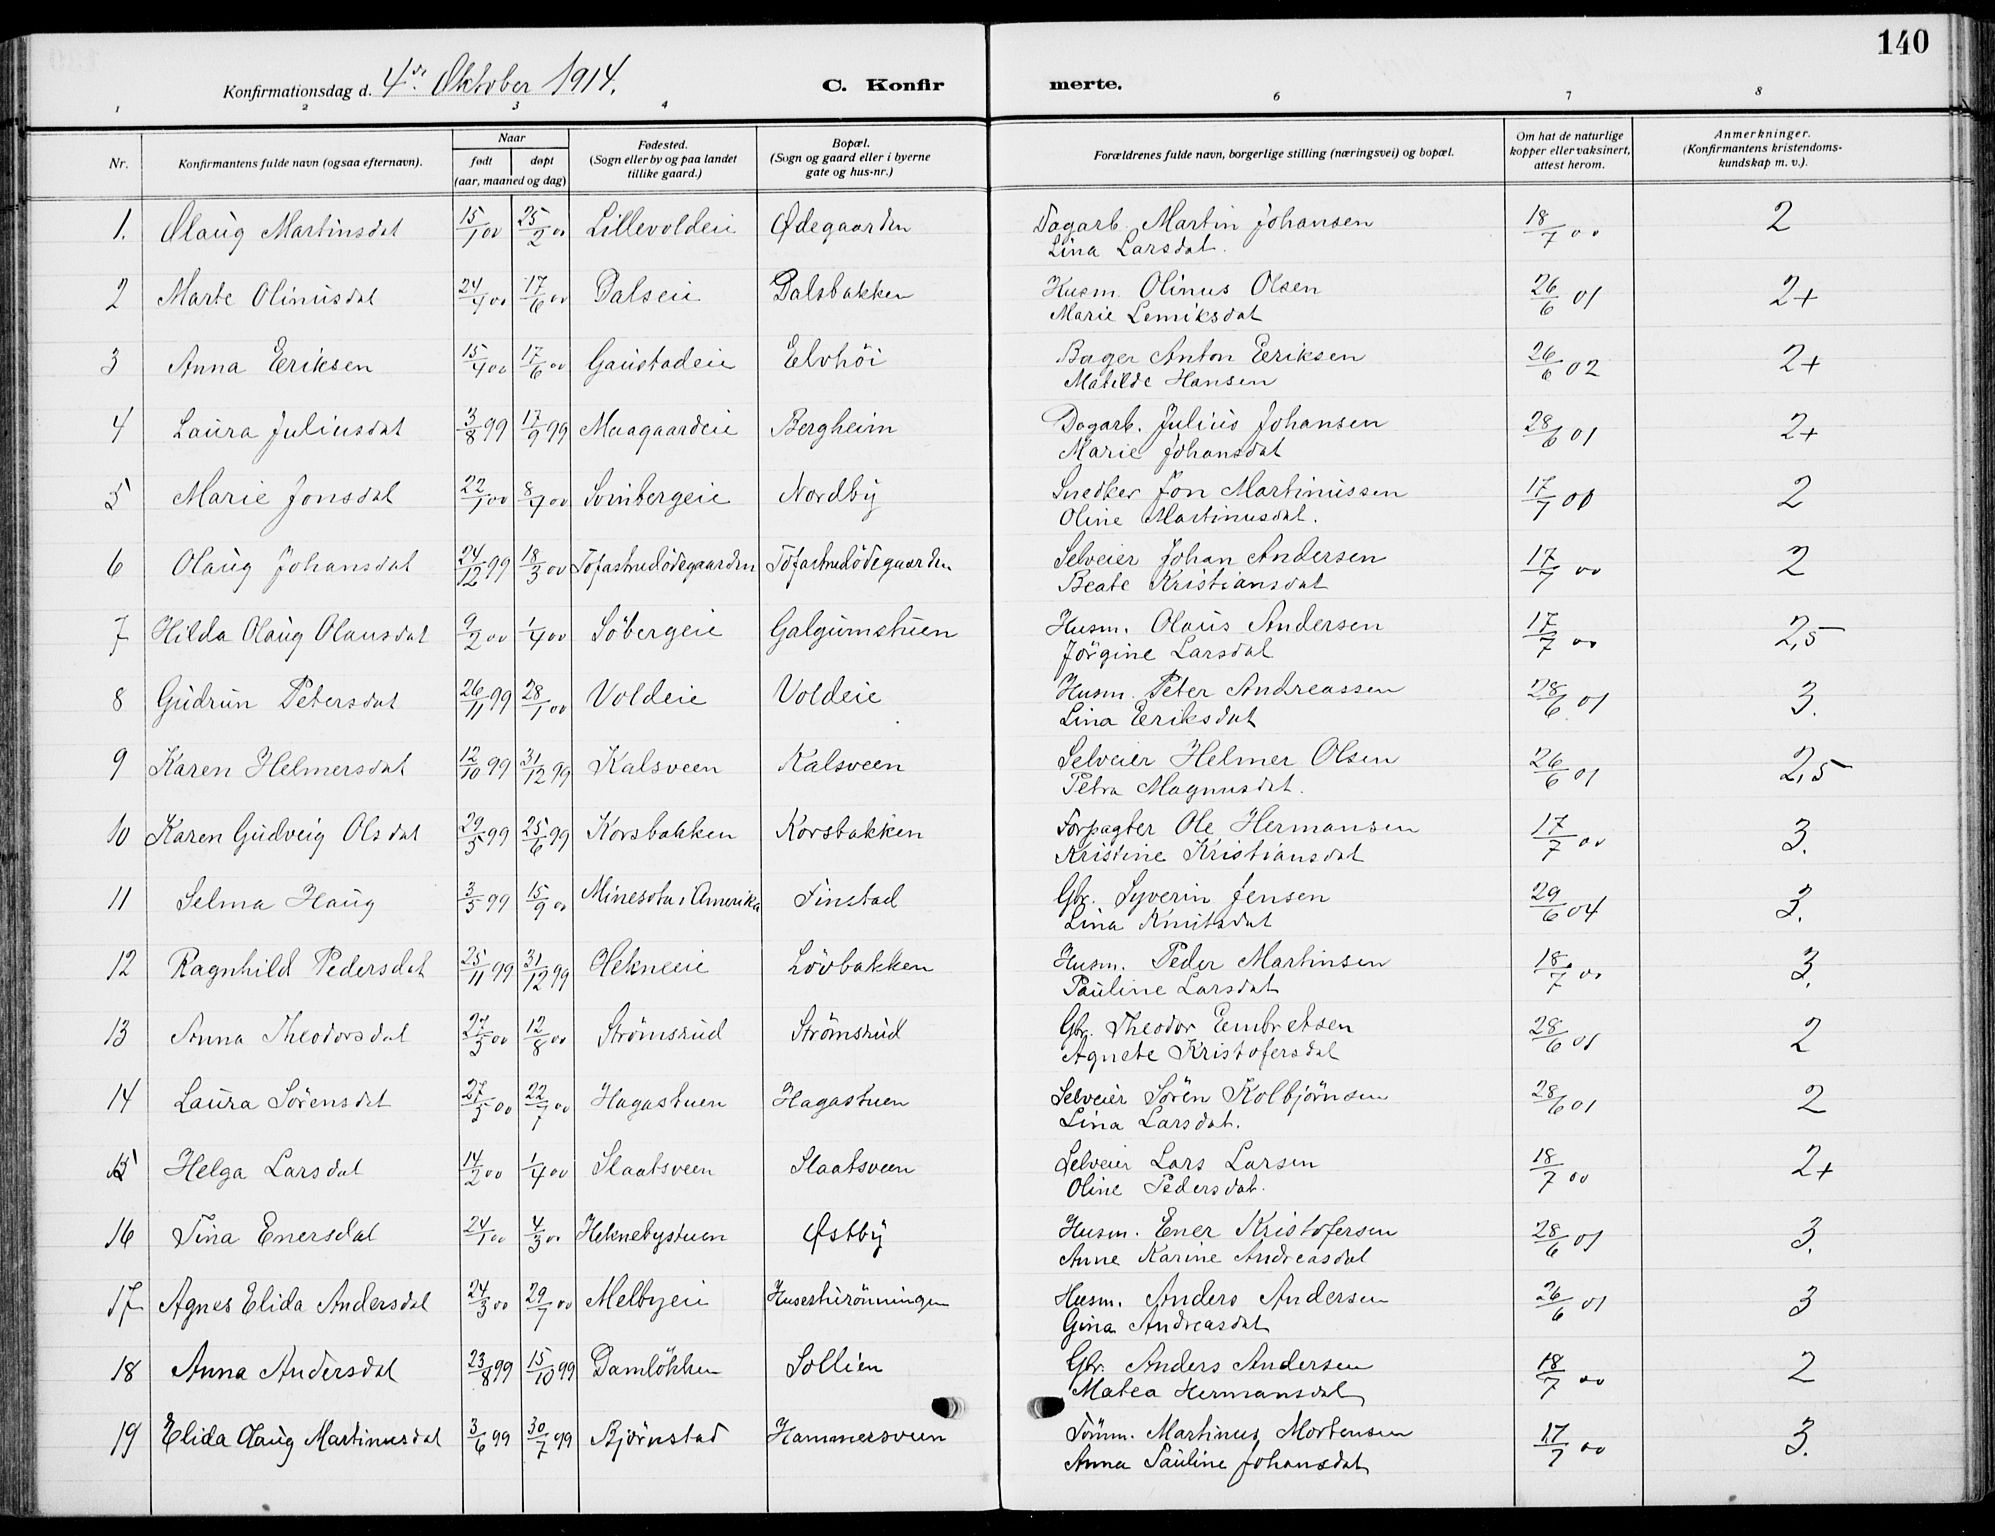 140
Konfirmationsdag d. 4de Oktober 1914. C. Konfir merte.
1 2 3 4 6 7 8
Nr. Konfirmantens fulde navn (ogsaa efternavn). Naar født døpt (aar, maaned og dag) Fødested. (Sogn eller by og paa landet tillike gaard.) Bopæl. (Sogn og gaard eller i byerne gate og hus-nr.) Forældrenes fulde navn, borgerlige stilling (næringsvei) og bopæl. Om hat de naturlige kopper eller vaksinert, attest herom. Anmerkninger. (Konfirmantens kristendoms- kundskap m. v.).
1. Olaug Martinsdat 15/1 00 25/2 00 Lillevoldeie Ødegaarden Dagarb. Martin Johansen 18/7 00 2
Lina Larsdat.
2 Marte Olinusdat 24/4 00 17/6 00 Dalseie Dalsbakken Husm. Olinus Olsen 26/6 01 2+
Marie Lemiksdat
3 Anna Eeriksen 15/4 00 17/6 00 Gaustadeie Elvhöi Bager Anton Eeriksen 26/6 02 2+
Matilde Hansen
4 Laura Juliusdat 3/8 99 17/9 99 Maagaardeie Bergheim Dagarb. Julius Johansen 28/6 01 2+
Marie Johansdat
5 Marie Jonsdat 22/1 00 8/4 00 Svinbergeie Nordby Snedker Jon Martinussen 17/7 00 2
Oline Martinusdat.
6 Olaug Johansdat 24/12 99 18/3 00 Tofastrudödegaarden Tofastrudödegaarden Selveier Johan Andersen 17/7 00 2
Beate Kristiansdat
7 Hilda Olaug Olausdat 9/2 00 1/4 00 Söbergeie Galgumstuen Husm. Olaus Andersen 17/7 00 2,5
Jörgine Larsdat
8 Gudrun Petersdat 26/11 99 28/1 00 Voldeie Voldeie Husm. Peter Andreassen 28/6 01 3.
Lina Eeriksdat
9 Karen Helmersdat 12/10 99 31/12 99 Kalsveen Kalsveen Selveier Helmer Olsen 26/6 01 2,5
Petra Magnusdat.
10 Karen Gudveig Olsdat 29/5 99 25/6 99 Korsbakken Korsbakken Forpagter Ole Hermansen 17/7 00 3.
Kristine Kristiansdat
11 Selma Haug 3/5 99 15/9 00 Minesota i Amerika Finstad Gbr. Syverin Jensen 29/6 04 3.
Lina Knutsdat
12 Ragnhild Pedersdat 25/11 99 31/12 99 Hekneeie Lövbakken Husm. Peder Martinsen 18/7 00 3.
Pauline Larsdat
13 Anna Theodorsdat 27/5 00 12/8 00 Strömsrud Strömsrud Gbr. Theodor Eembretsen 28/6 01 2
Agnete Kristofersdat
14 Laura Sörensdat 27/5 00 22/7 00 Hagastuen Hagastuen Selveier Sören Kolbjörnsen 28/6 01 2
Lina Larsdat.
15 Helga Larsdat 14/2 00 1/4 00 Slaatsveen Slaatsveen Selveier Lars Larsen 18/7 00 2+
Oline Pedersdat.
16 Tina Enersdat 24/1 00 4/3 00 Heknebystuen Østby Husm. Ener Kristofersen 28/6 01 3.
Anne Karine Andreasdat
17 Agnes Elida Andersdat 24/3 00 29/7 00 Melbyeie Husm. Anders Andersen 26/6 01 3
Gina Andreasdat
18 Anna Andersdat 23/8 99 15/10 99 Damlökken Sollien Gbr. Anders Andersen 18/7 00 2
Matea Hermansdat
19 Elida Olaug Martinusdat 3/6 99 30/7 99 Bjørnstad Hammersveen Tömm. Martinus Mortensen 17/7 00 3.
Anna Pauline Johansdat